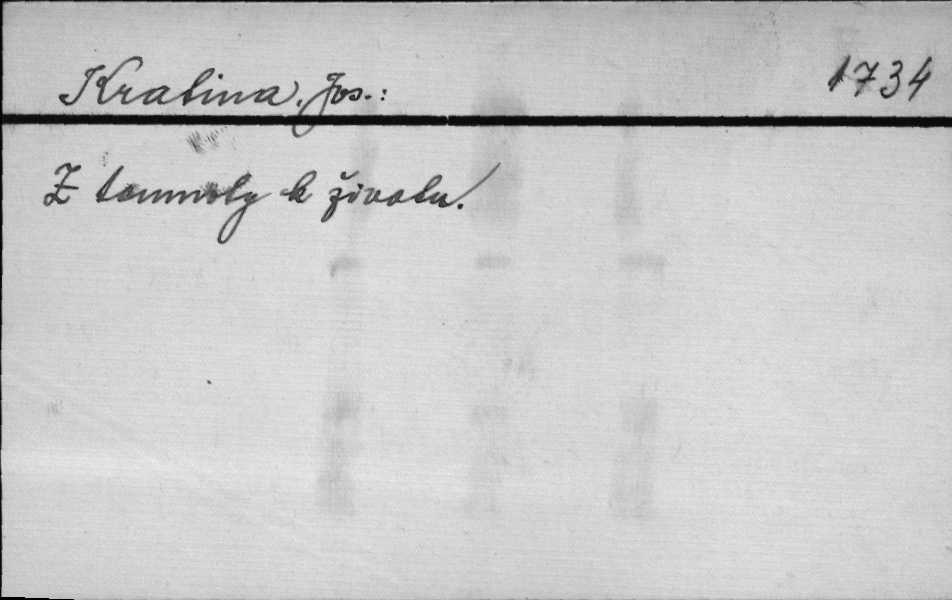 Kratina, Jos.: 1734
Z temnoty k životu.